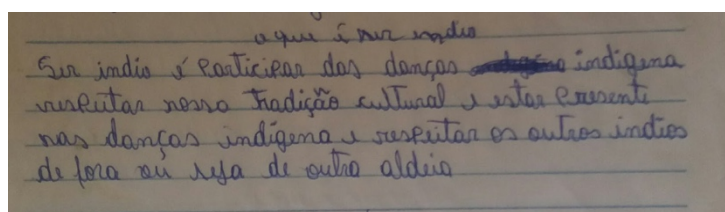 o que é ser indio
Ser indio é participar das danças indigena
respeitar nossa tradição cultural e estar presente
nas danças indígena e respeitar os outros indios
de fora ou seja de outra aldeia